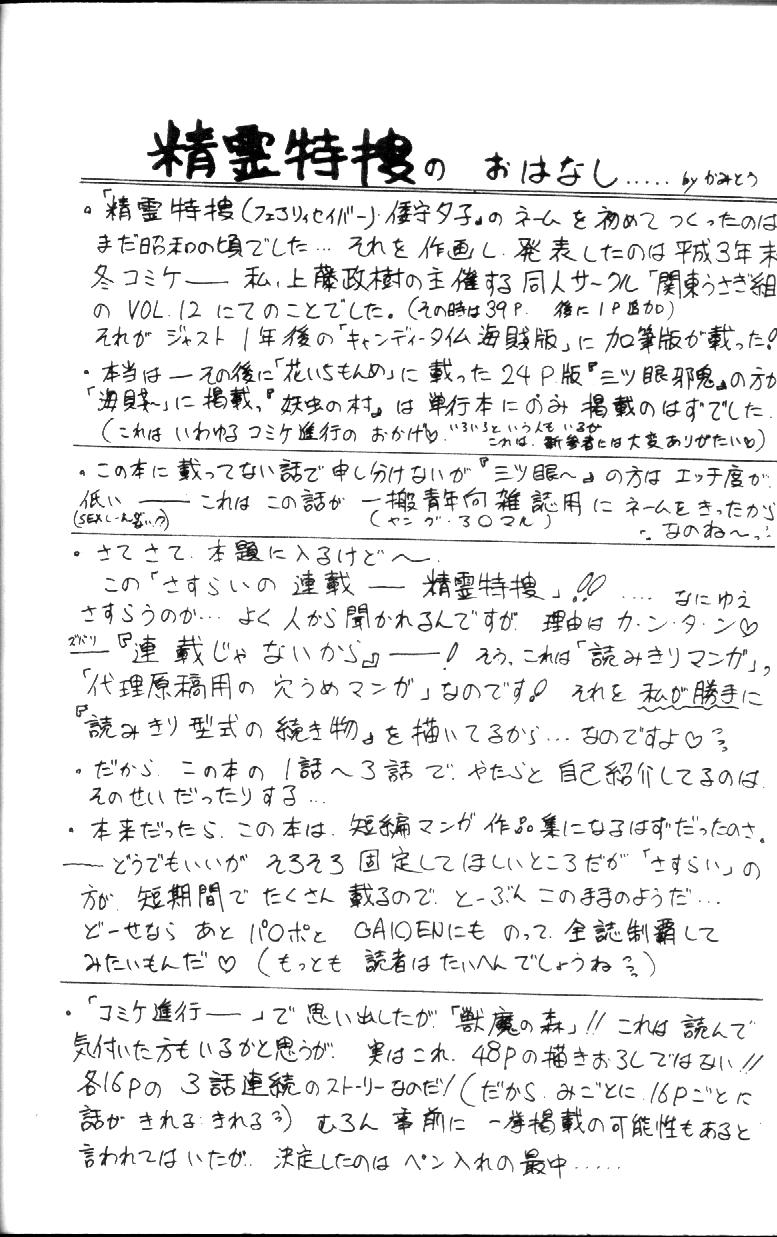 精霊特捜の おはなし..... by かみとう
・「精霊特捜(フェアリィセイバー)・倭守夕子」の ネーム を 初めて つくったのは
まだ昭和の頃でした… それを 作画し、発表したのは平成3年末
冬コミケ── 私、上藤政樹の主催する 同人サークル「関東うさぎ組」
の VOL.12 にてのことでした。(その時は39P. 後に1P追加)
それが ジャスト 1年後の「キャンディータイム海賊版」に 加筆版が載った!
・本当は ─ その後に「花いちもんめ」に 載った 24P.版『三ツ眼邪鬼』の方が
「海賊〜」に 掲載、『妖虫の村』は 単行本にのみ 掲載のはずでした.
(これは いわゆる コミケ進行の おかげ♡. いろいろという人もいるが
これは、新参者には大変ありがたい♡)
・この本に 載ってない話で 申し分けないが『三ツ眼〜』の方は エッチ度が.
低い ── これは この話が 一搬青年向 雑誌用 に ネームをきったから
(ヤング・30マル)
なのね〜
・さてさて、本題に入るけど〜.
この「さすらいの 連載 ── 精霊特捜」!! .... なにゆえ
さすらうのか… よく 人から聞かれるんですが. 理由は カ・ン・タ・ン♡
ズバリ『連載じゃないから』──! そう、これは「読みきりマンガ」,
「代理原稿用の 穴うめマンガ」なのです! それを 私が勝手に
『読みきり型式の 続き物』を 描いてるから… なのですよ♡
・だから この本の 1話〜3話で、やたらと 自己紹介してるのは、
そのせいだったりする…
・本来だったら、この本は、短編マンガ作品集になるはずだったのさ.
── どうでもいいが そろそろ 固定して ほしいところだが「さすらい」の
方が 短期間で たくさん 載るので、とーぶん このままのようだ…
どーせなら あと パロポと GAIDENにも のって、全誌制覇して
みたいもんだ♡ (もっとも 読者は たいへんでしょうね)
・「コミケ進行──」で 思い出したが「獣魔の森」!! これは 読んで
気付いた方もいるかと思うが. 実はこれ、48Pの描きおろしではない!!
各16Pの 3話連続のストーリーなのだ!(だから みごとに、16Pごとに
話が きれる きれる) むろん 事前に 一挙掲載の可能性もあると
言われてはいたが. 決定したのは ペン入れの 最中.....